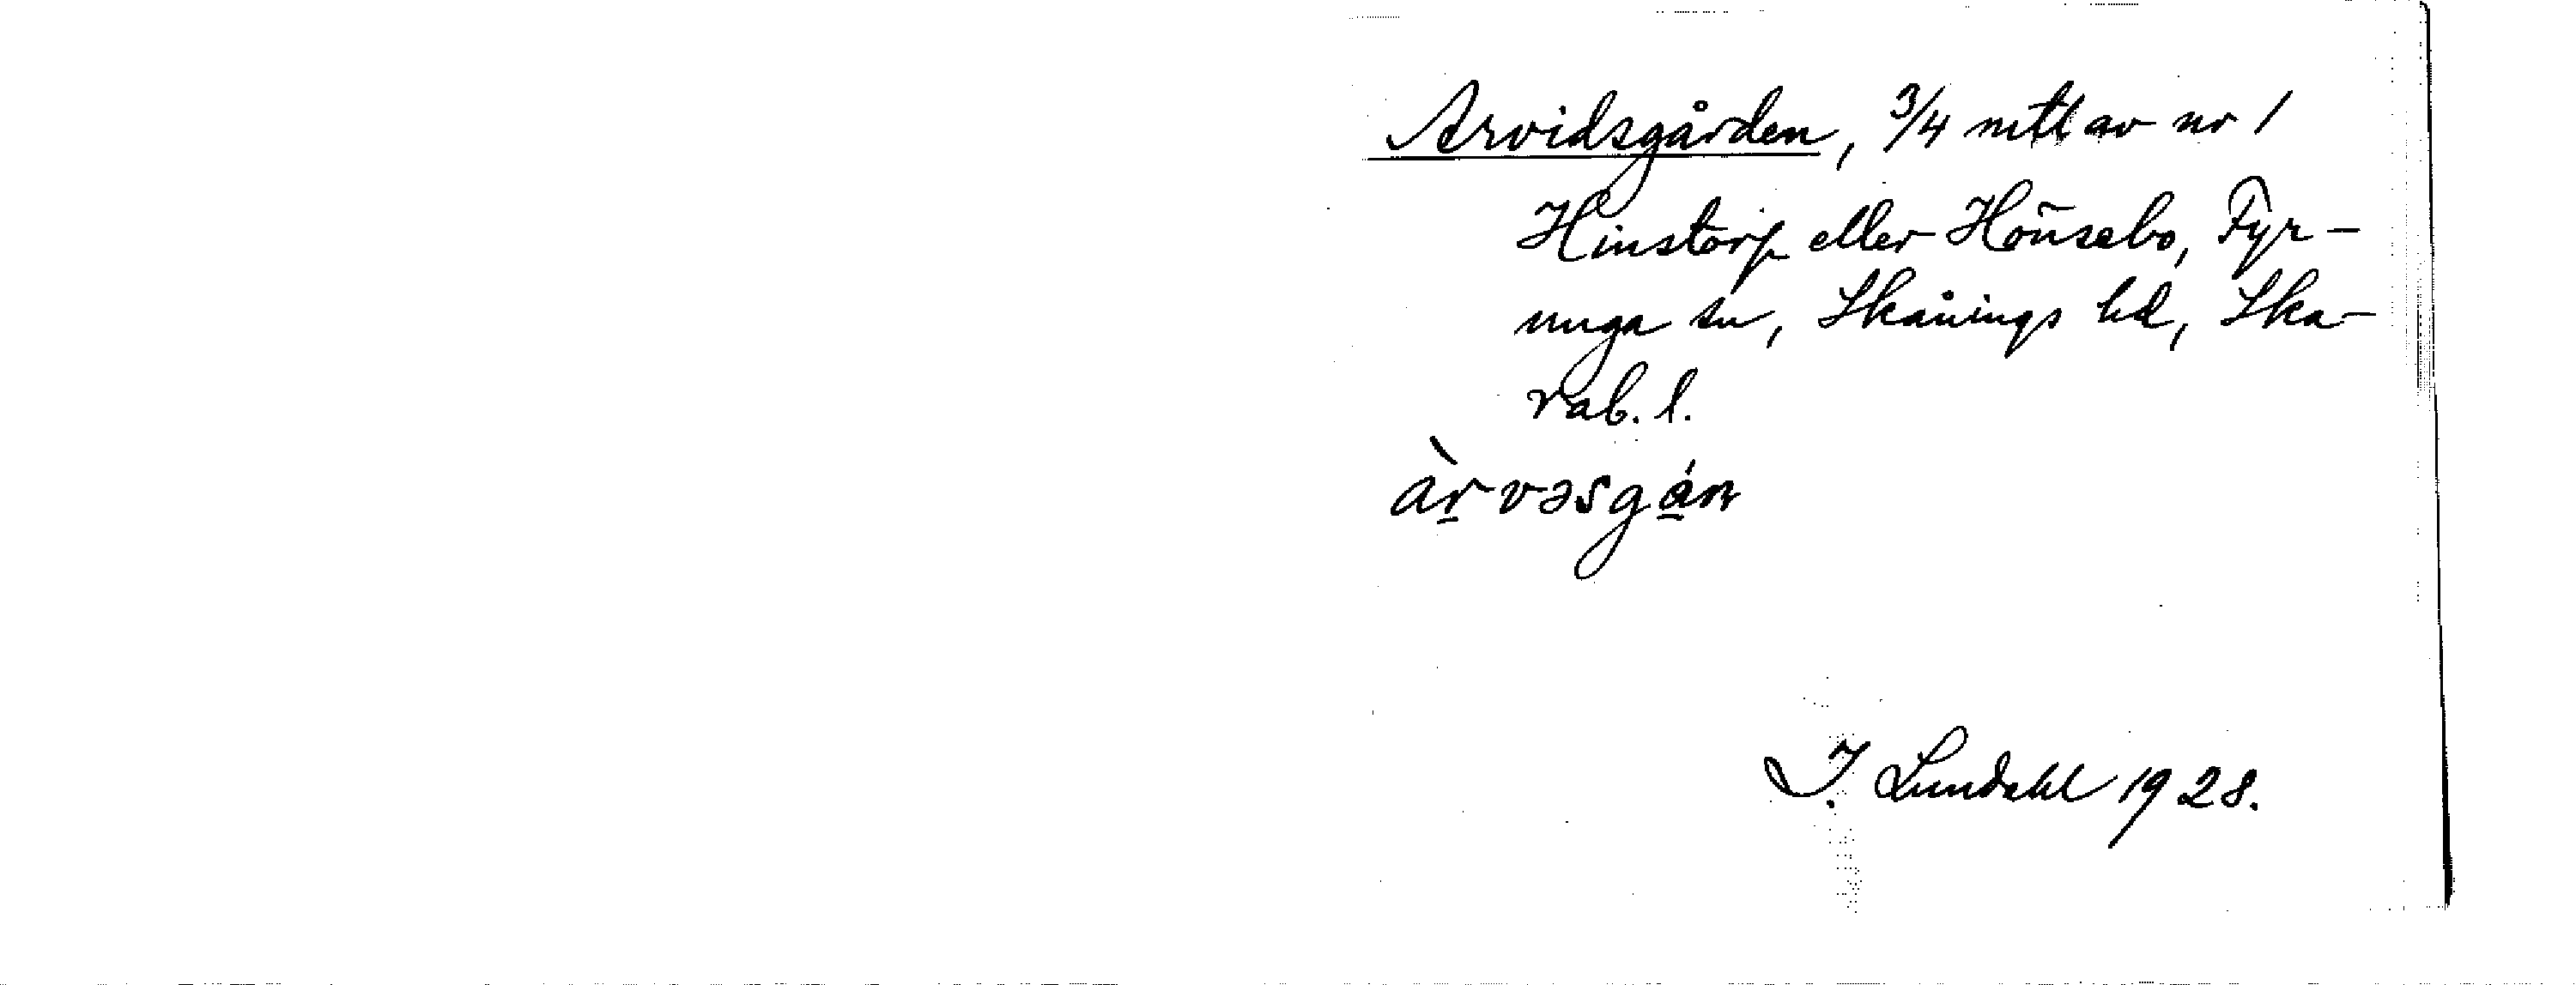 Arvidsgården, 3/4 mtl av nr 1
Hinstorp eller Hönsebo, Fyr-
unga sn, Skånings hd, Ska-
rab. l.
àr̲vəsgá̲n
I. Lundahl 1928.